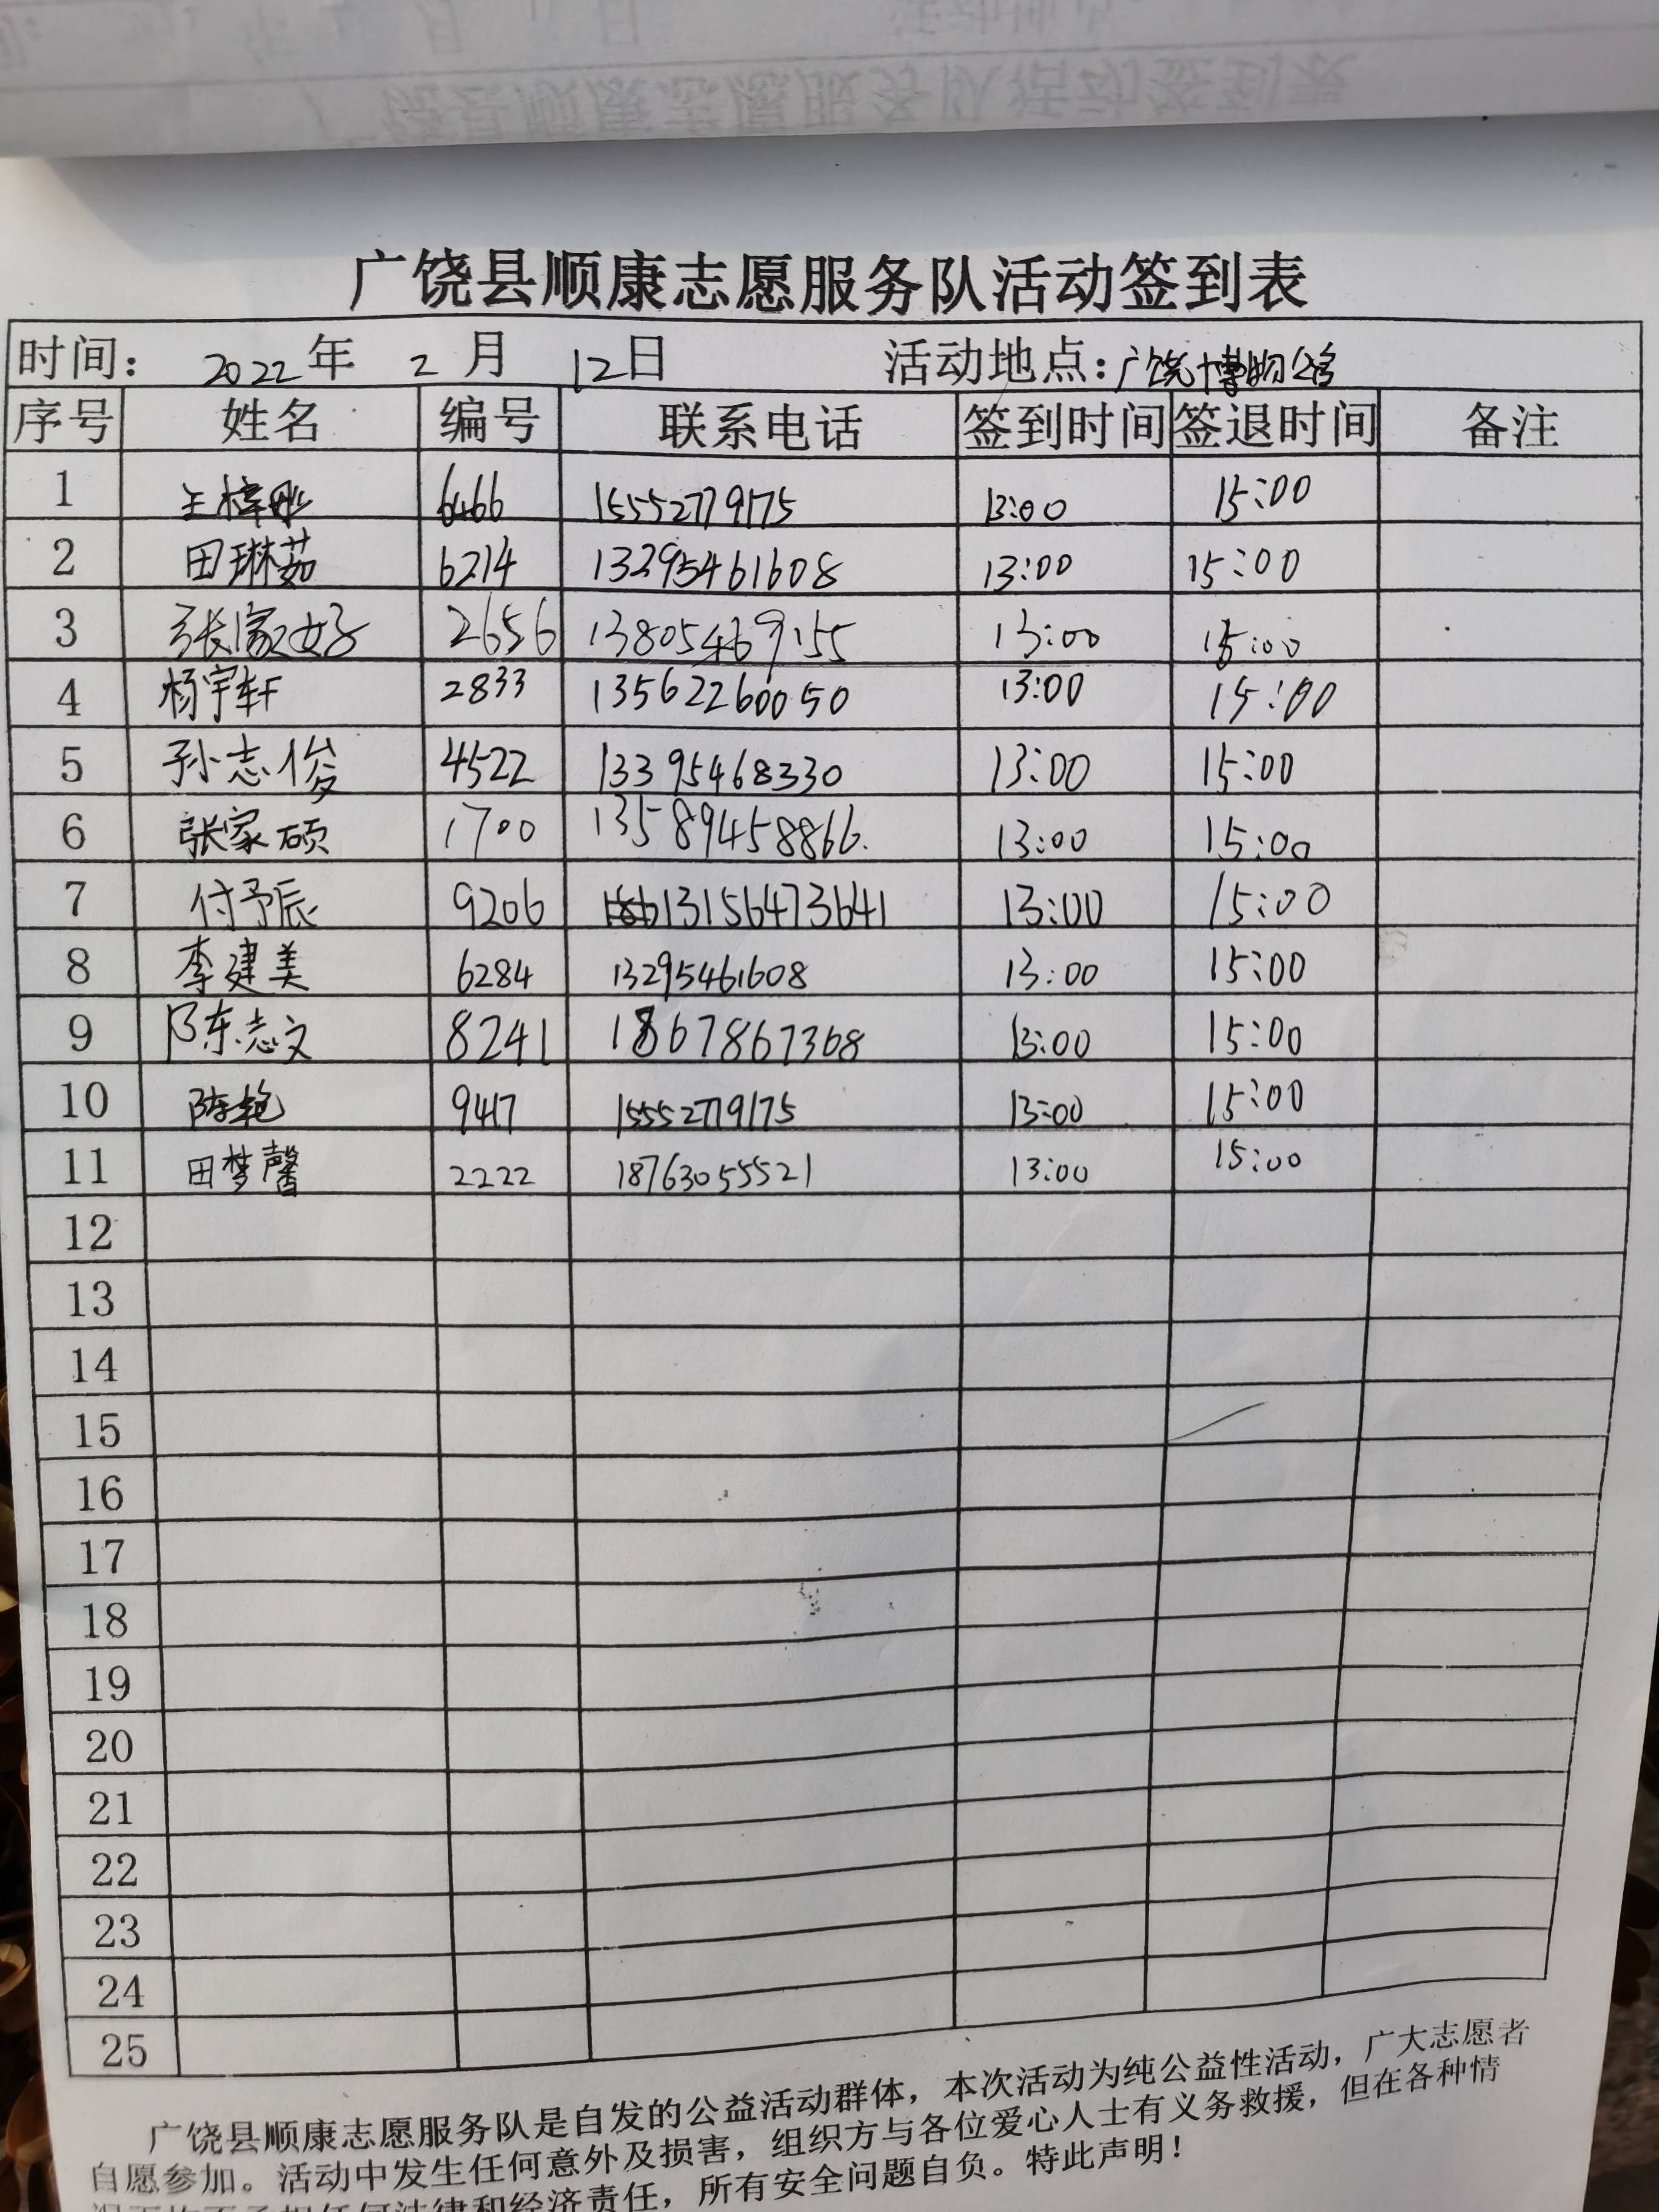 广饶县顺康志愿服务队活动签到表
时间： 2022年 2月 12日 活动地点：广饶博物馆
序号 姓名 编号 联系电话 签到时间 签退时间 备注
1 王梓 6466 15552779175 13:00 15:00
2 田琳茹 6214 13295461608 13:00 15:00
3 张家好 2656 13805469155 13:00 15:00
4 杨宇轩 2833 13562260050 13:00 15:00
5 孙志俊 4522 13395468330 13:00 15:00
6 张家硕 1700 13589458866. 13:00 15:00
7 付予辰 9206 13156473641 13:00 15:00
8 李建美 6284 13295461608 13:00 15:00
9 陈志文 8241 1867867368 13:00 15:00
10 陈艳 9417 15552779175 13:00 15:00
11 田梦馨 2222 18763055521 13:00 15:00
12
13
14
15
16
17
18
19
20
21
22
23
24
25
广饶县顺康志愿服务队是自发的公益活动群体，本次活动为纯公益性活动，广大志愿者
自愿参加。活动中发生任何意外及损害，组织方与各位爱心人士有义务救援，但在各种情
况下均不承担任何法律和经济责任，所有安全问题自负。特此声明！